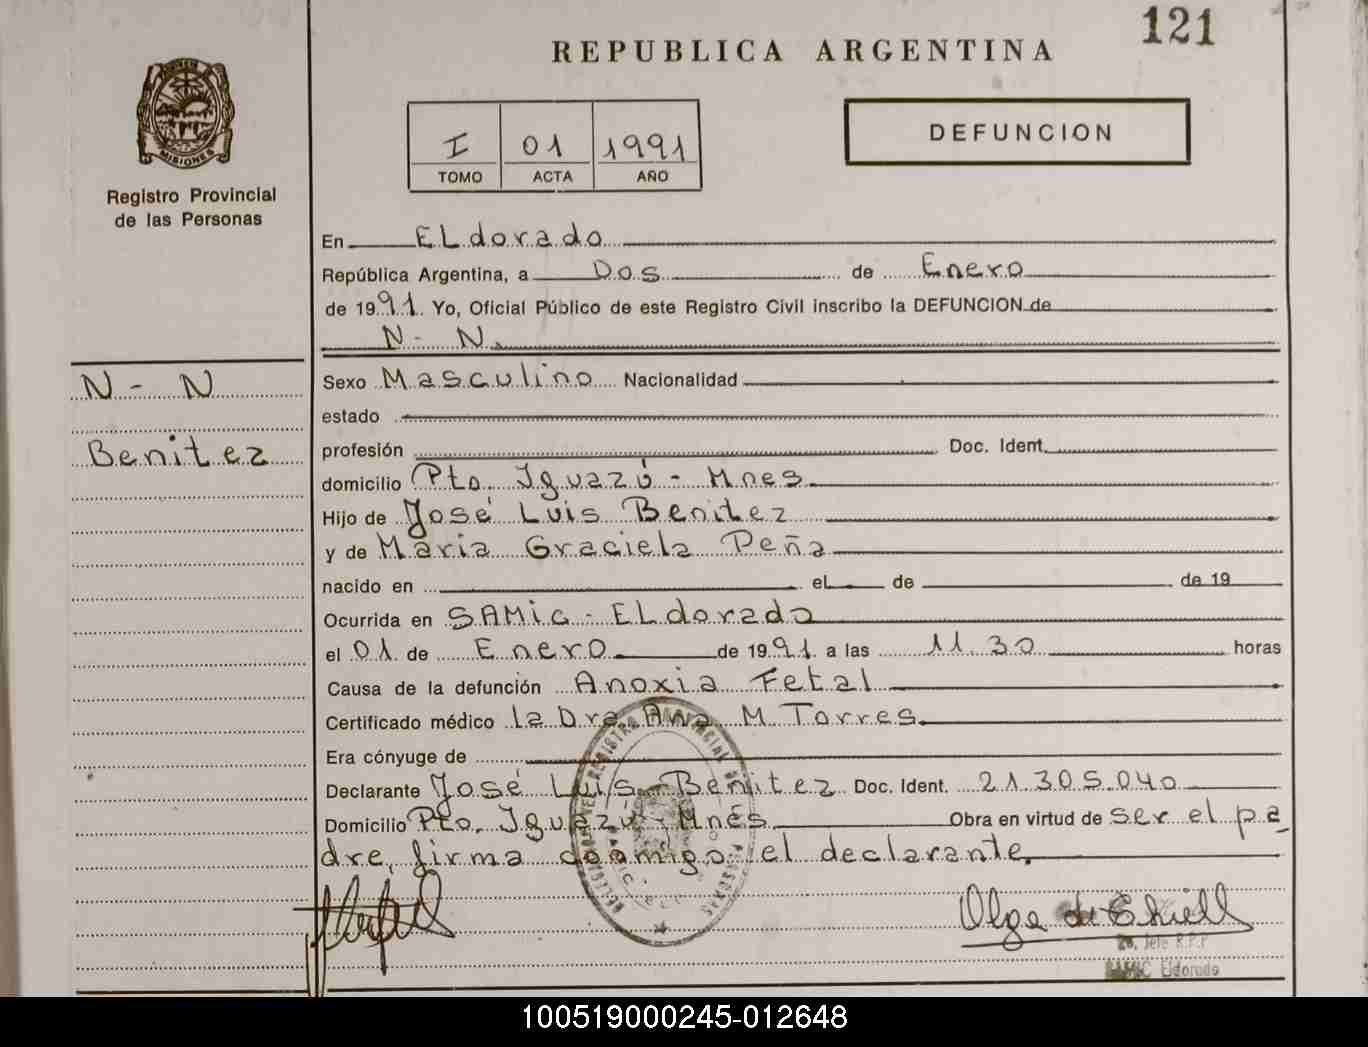 121
REPUBLICA ARGENTINA
MISIONES
Registro Provincial
de las Personas
I 01 1991
TOMO ACTA AÑO
DEFUNCION
En ELdorado
República Argentina, a Dos de Enero
de 1991 Yo, Oficial Público de este Registro Civil inscribo la DEFUNCION de
N - N.
N - N
Benitez
Sexo Masculino Nacionalidad
estado
profesión Doc. Ident.
domicilio Pto. Iguazú - Mnes
Hijo de José Luis Benitez
y de Maria Graciela Peña
nacido en el de de 19
Ocurrida en SAMic - ELdorado
el 01 de Enero de 1991 a las 11.30 horas
Causa de la defunción Anoxia Fetal
Certificado médico la Dra Ana M Torres
Era cónyuge de
Declarante José Luis Benitez Doc. Ident. 21.305.040
Domicilio Pto. Iguazú - Mnés Obra en virtud de ser el pa
dre, firma conmigo el declarante.
Olga de
Jefe R.P.P
SAMIC Eldorado
100519000245-012648